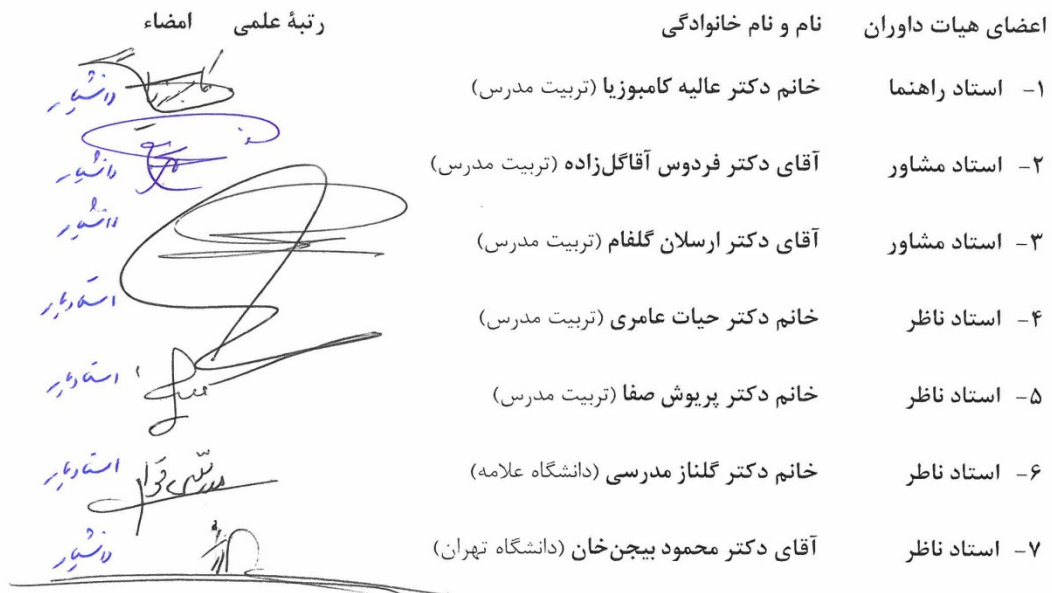 اعضای هیات داوران نام و نام خانوادگی رتبۀ علمی امضاء
۱- استاد راهنما خانم دکتر عالیه کامبوزیا (تربیت مدرس) دانشیار
۲- استاد مشاور آقای دکتر فردوس آقاگل‌زاده (تربیت مدرس) دانشیار
۳- استاد مشاور آقای دکتر ارسلان گلفام (تربیت مدرس) دانشیار
۴- استاد ناظر خانم دکتر حیات عامری (تربیت مدرس) استادیار
۵- استاد ناظر خانم دکتر پریوش صفا (تربیت مدرس) استادیار
۶- استاد ناطر خانم دکتر گلناز مدرسی (دانشگاه علامه) استادیار
۷- استاد ناظر آقای دکتر محمود بیجن‌خان (دانشگاه تهران) دانشیار